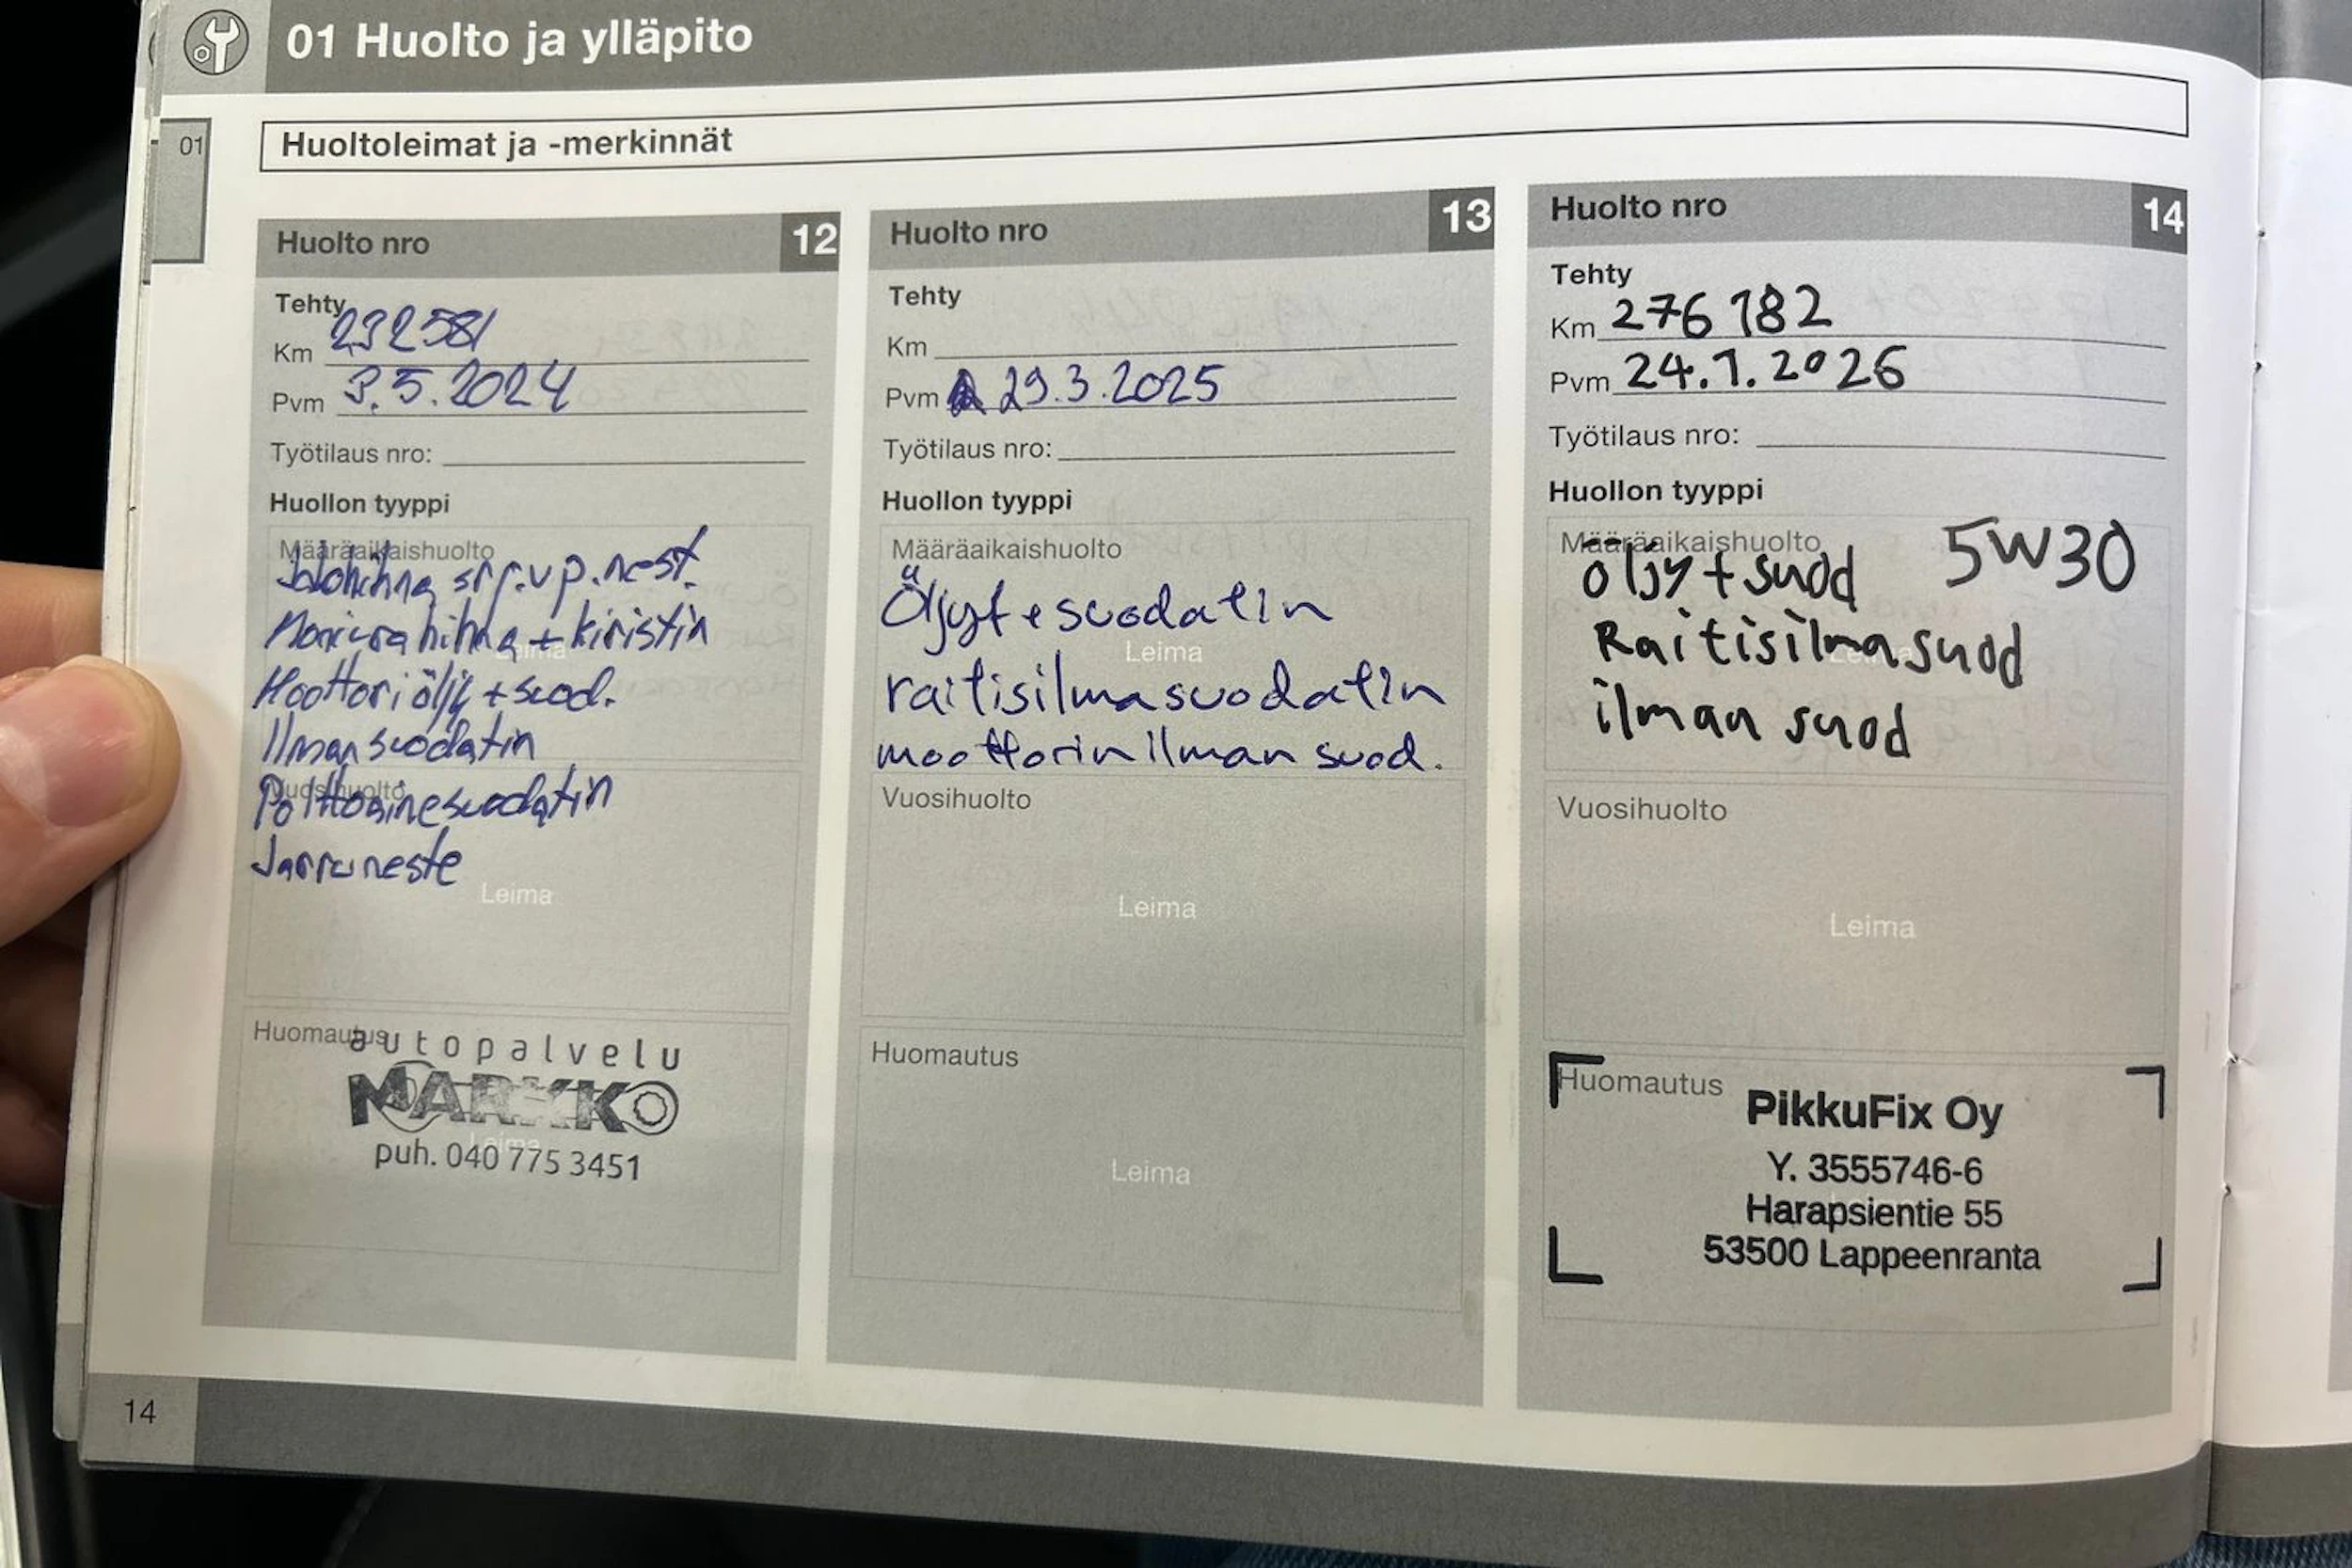 01 Huolto ja ylläpito
01
Huoltoleimat ja -merkinnät
Huolto nro 12
Tehty
Km 232581
Pvm 3.5.2024
Työtilaus nro:
Huollon tyyppi
Määräaikaishuolto
Jakohihna srj. vp. nest.
hihna + kiristin
Leima
Moottoriöljy + suod.
Ilmansuodatin
Vuosihuolto
Polttoainesuodatin
Jarruneste
Leima
Huomautus
autopalvelu
MARKKO
Leima
puh. 040 775 3451
Huolto nro 13
Tehty
Km
Pvm 29.3.2025
Työtilaus nro:
Huollon tyyppi
Määräaikaishuolto
Öljyt + suodatin
Leima
raitisilmasuodatin
moottorin ilman suod.
Vuosihuolto
Leima
Huomautus
Leima
Huolto nro 14
Tehty
Km 276 182
Pvm 24.1.2026
Työtilaus nro:
Huollon tyyppi
Määräaikaishuolto
öljy + suod 5W30
Raitisilmasuod
Leima
ilman suod
Vuosihuolto
Leima
Huomautus
PikkuFix Oy
Y. 3555746-6
Harapsientie 55
53500 Lappeenranta
14